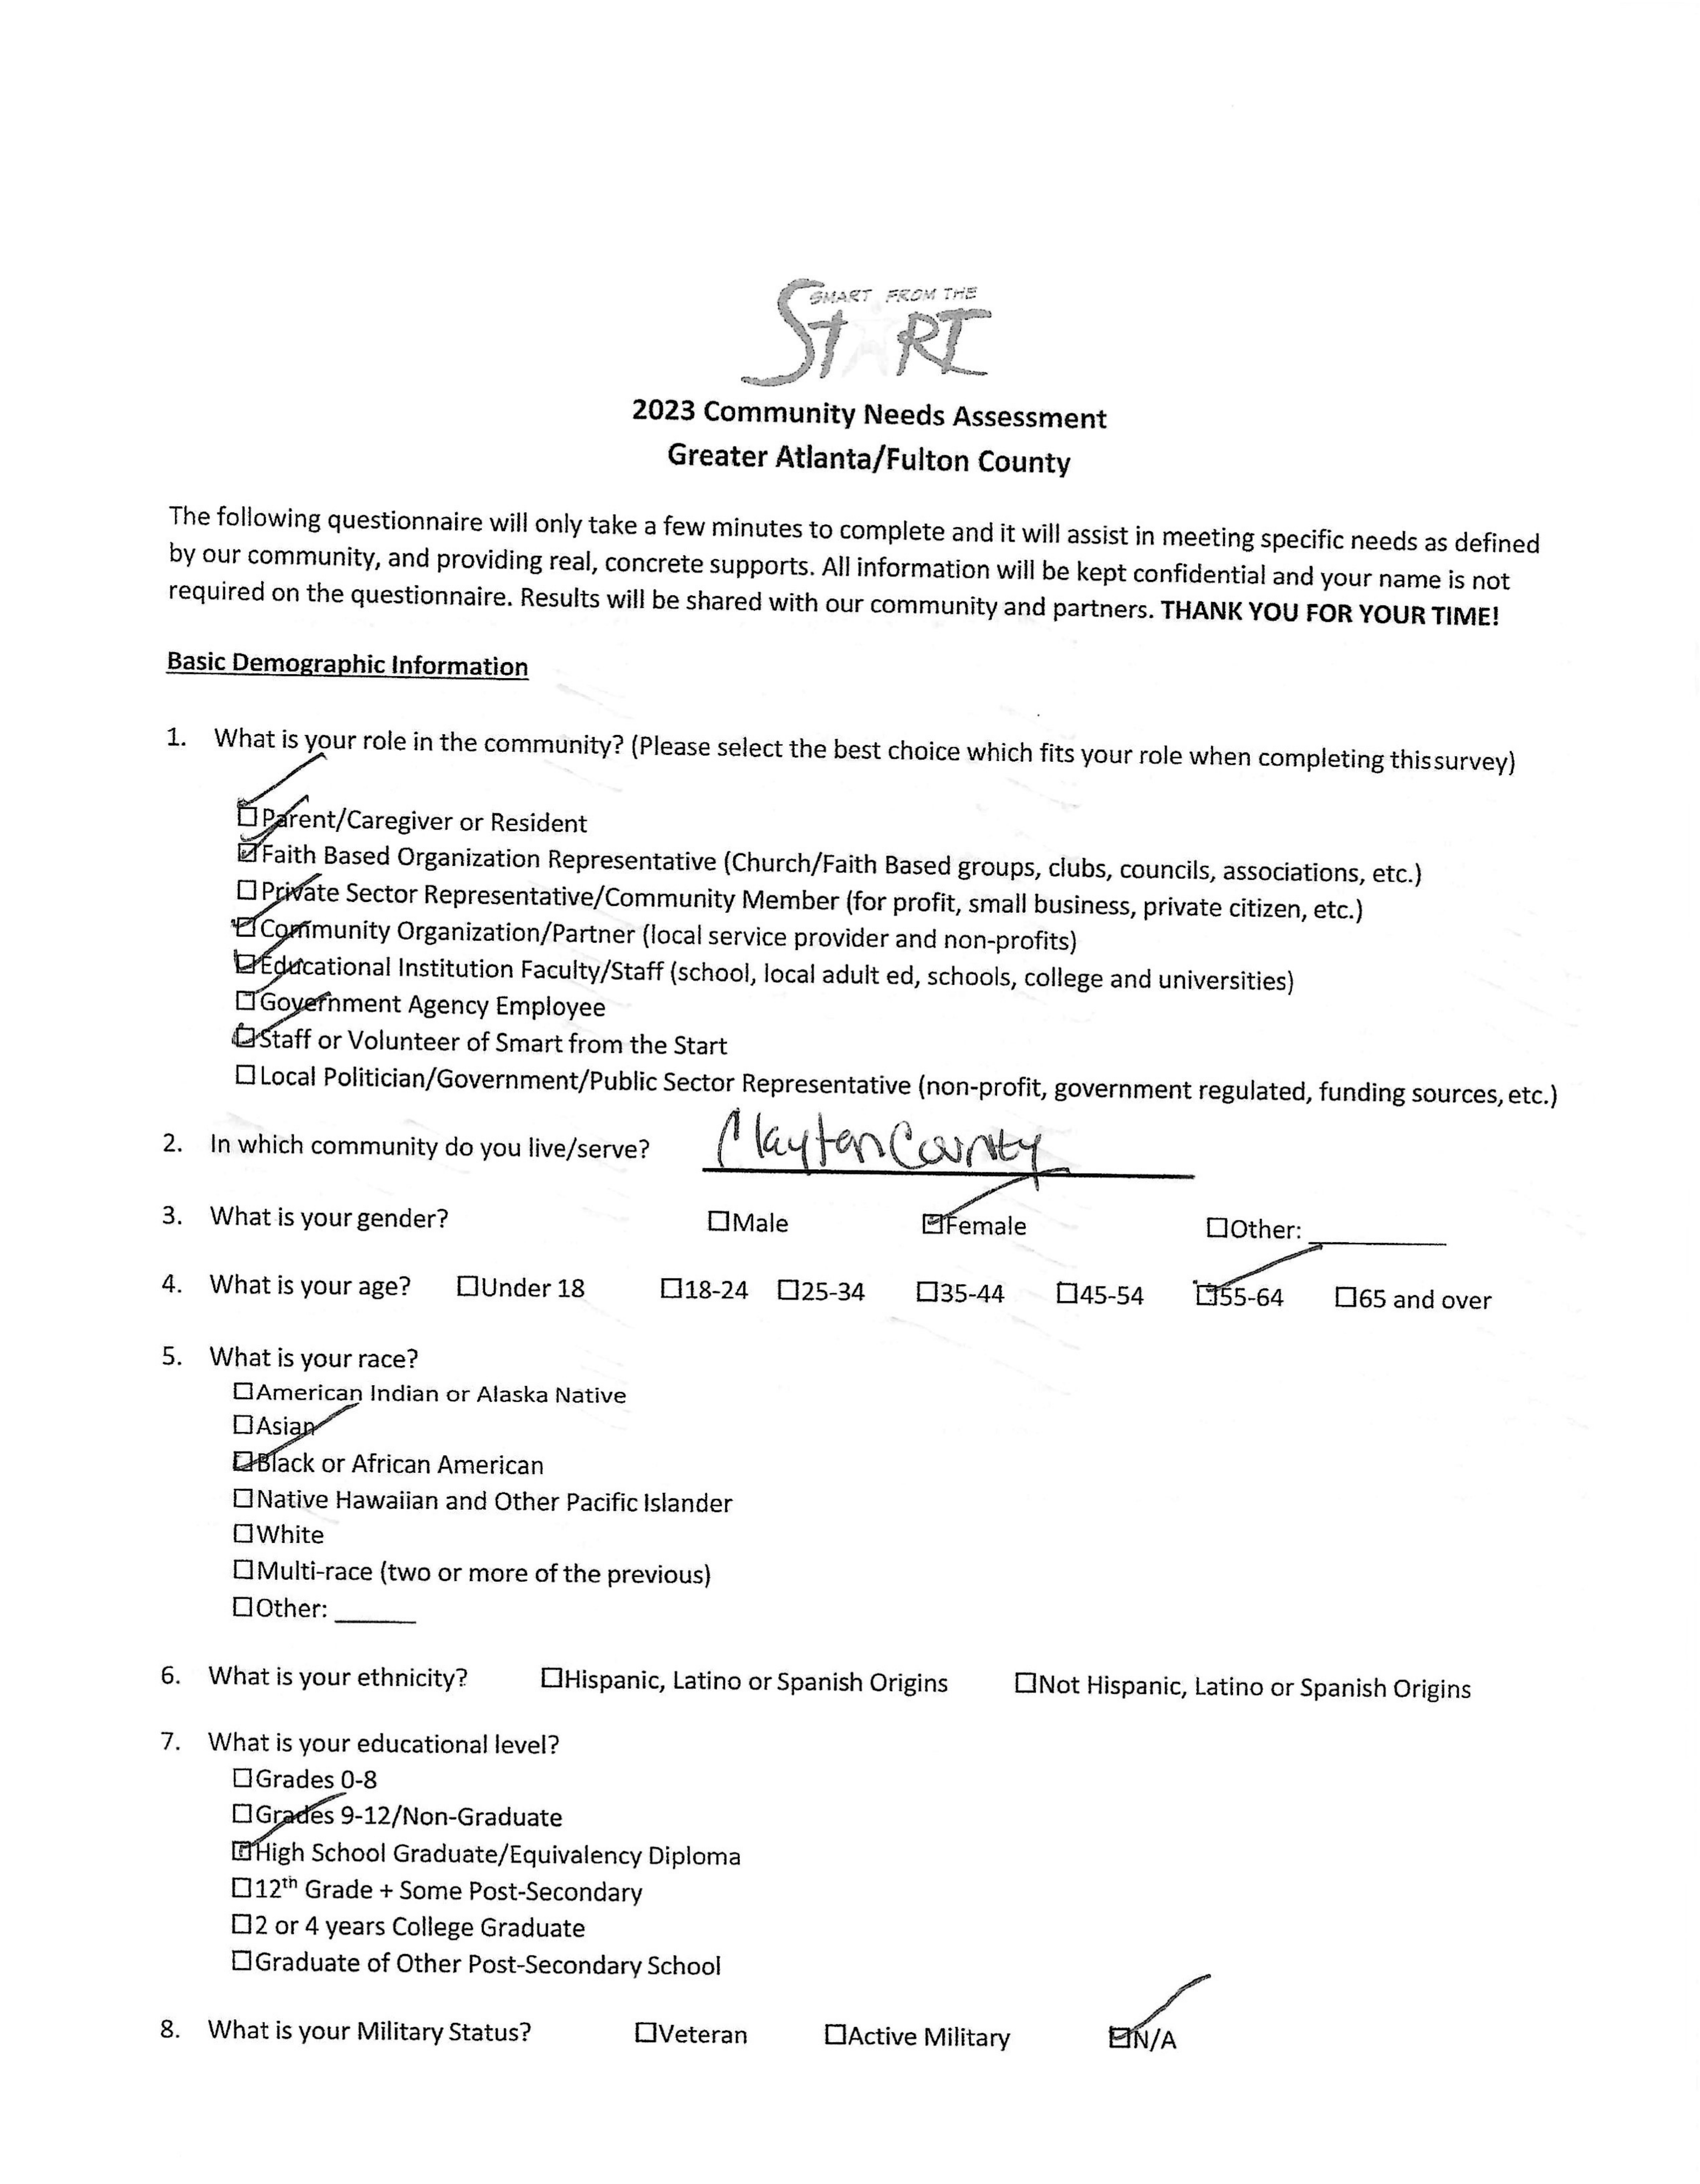 SMART FROM THE
START
2023 Community Needs Assessment
Greater Atlanta/Fulton County
The following questionnaire will only take a few minutes to complete and it will assist in meeting specific needs as defined
by our community, and providing real, concrete supports. All information will be kept confidential and your name is not
required on the questionnaire. Results will be shared with our community and partners. THANK YOU FOR YOUR TIME!
Basic Demographic Information
1. What is your role in the community? (Please select the best choice which fits your role when completing this survey)
☑Parent/Caregiver or Resident
☑Faith Based Organization Representative (Church/Faith Based groups, clubs, councils, associations, etc.)
☐Private Sector Representative/Community Member (for profit, small business, private citizen, etc.)
☑Community Organization/Partner (local service provider and non-profits)
☑Educational Institution Faculty/Staff (school, local adult ed, schools, college and universities)
☐Government Agency Employee
☑Staff or Volunteer of Smart from the Start
☐Local Politician/Government/Public Sector Representative (non-profit, government regulated, funding sources, etc.)
2. In which community do you live/serve? Clayton County
3. What is your gender? ☐Male ☑Female ☐Other: ______
4. What is your age? ☐Under 18 ☐18-24 ☐25-34 ☐35-44 ☐45-54 ☑55-64 ☐65 and over
5. What is your race?
☐American Indian or Alaska Native
☐Asian
☑Black or African American
☐Native Hawaiian and Other Pacific Islander
☐White
☐Multi-race (two or more of the previous)
☐Other: ______
6. What is your ethnicity? ☐Hispanic, Latino or Spanish Origins ☐Not Hispanic, Latino or Spanish Origins
7. What is your educational level?
☐Grades 0-8
☐Grades 9-12/Non-Graduate
☑High School Graduate/Equivalency Diploma
☐12th Grade + Some Post-Secondary
☐2 or 4 years College Graduate
☐Graduate of Other Post-Secondary School
8. What is your Military Status? ☐Veteran ☐Active Military ☑N/A